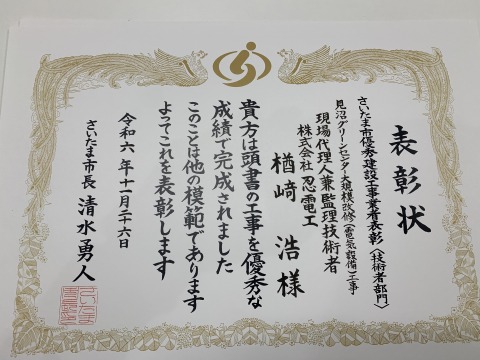 表彰状
さいたま市優秀建設工事業者表彰〈技術者部門〉
見沼グリーンセンター大規模改修(電気設備)工事
現場代理人兼監理技術者
株式会社 忍電工
楢﨑 浩 様
貴方は頭書の工事を優秀な
成績で完成されました
このことは他の模範であります
よってこれを表彰します
令和六年十一月二十六日
さいたま市長 清水勇人